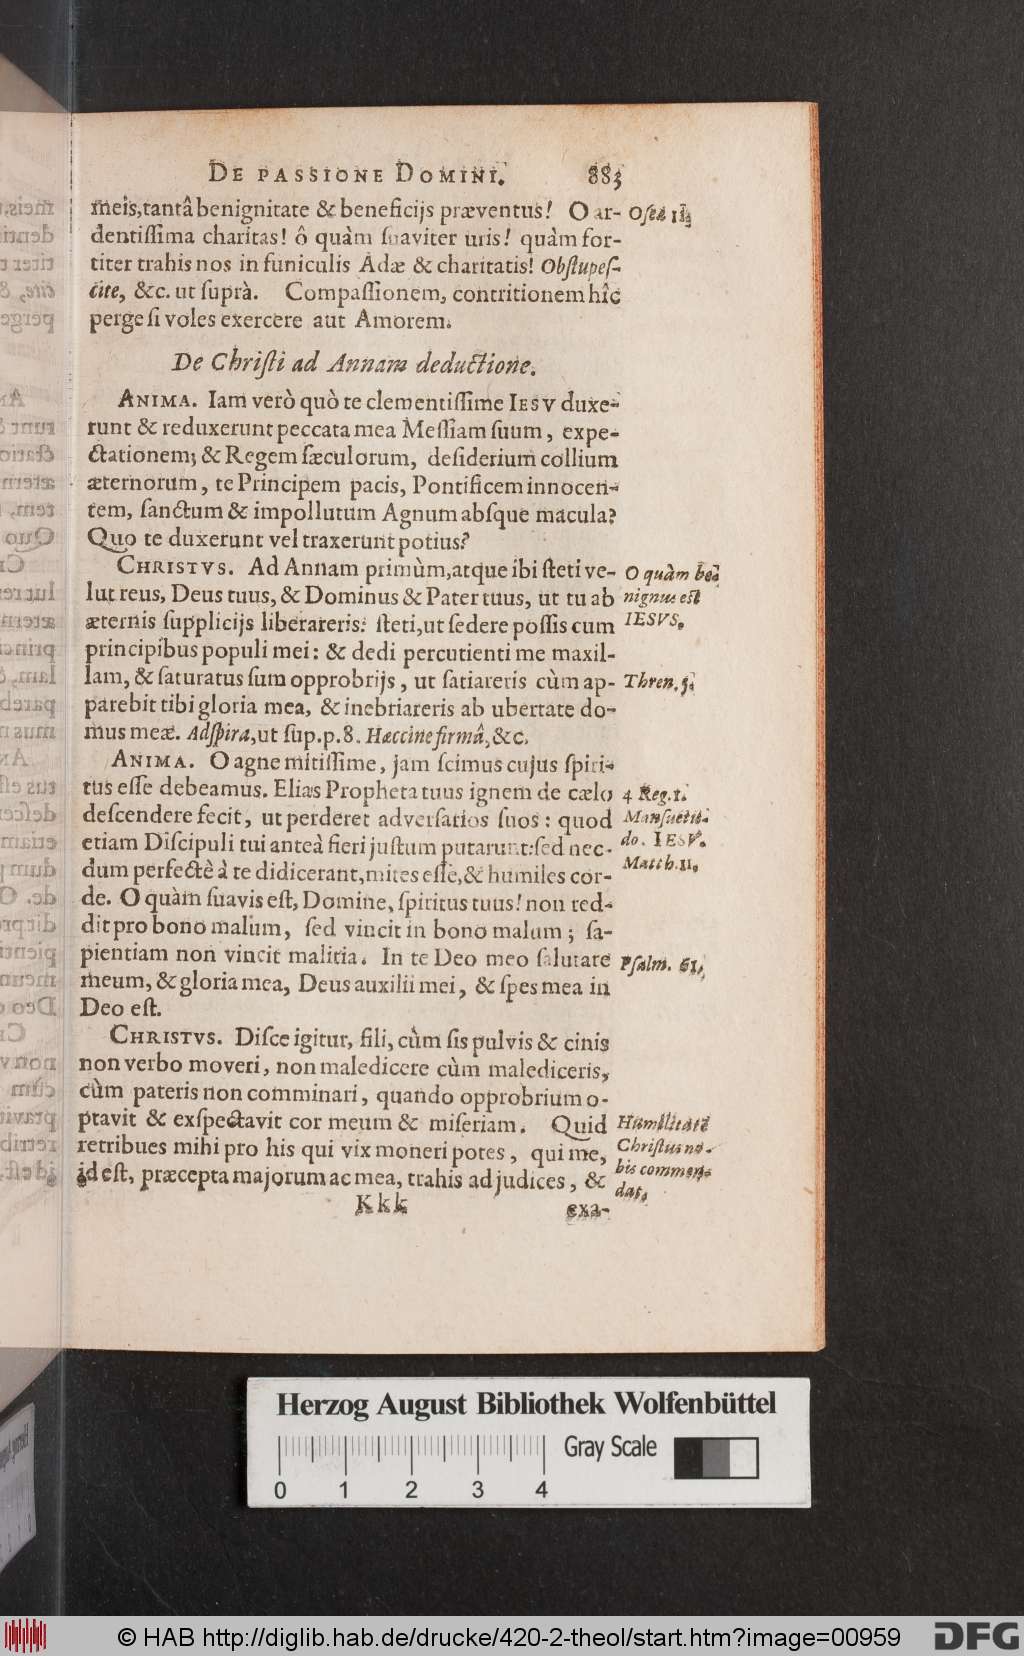 DE PASSIONE DOMINI. 883
meis, tantâ benignitate & beneficijs præventus! O ar- Oseæ 11.
dentiſſima charitas! ô quàm ſuaviter uris! quàm for-
titer trahis nos in funiculis Adæ & charitatis! Obſtupeſ-
cite, &c. ut ſuprà. Compaſſionem, contritionem hîc
perge ſi voles exercere aut Amorem.
De Chriſti ad Annam deductione.
ANIMA. Iam verò quò te clementiſſime IESV duxe-
runt & reduxerunt peccata mea Meſſiam ſuum, expe-
ctationem; & Regem ſæculorum, deſiderium collium
æternorum, te Principem pacis, Pontificem innocen-
tem, ſanctum & impollutum Agnum abſque macula?
Quo te duxerunt vel traxerunt potius?
CHRISTVS. Ad Annam primùm, atque ibi ſteti ve- O quàm be-
lut reus, Deus tuus, & Dominus & Pater tuus, ut tu ab nignus eſt
æternis ſupplicijs liberareris: ſteti, ut ſedere poſſis cum IESVS.
principibus populi mei: & dedi percutienti me maxil-
lam, & ſaturatus ſum opprobrijs, ut ſatiareris cùm ap- Thren. 3.
parebit tibi gloria mea, & inebriareris ab ubertate do-
mus meæ. Adſpira, ut ſup. p. 8. Haccine firmâ, &c.
ANIMA. O agne mitiſſime, jam ſcimus cujus ſpiri-
tus eſſe debeamus. Elias Propheta tuus ignem de cælo 4 Reg. 1.
deſcendere fecit, ut perderet adverſarios ſuos: quod Manſuetu-
etiam Diſcipuli tui anteà fieri juſtum putarunt: ſed nec- do. IESV.
dum perfectè à te didicerant, mites eſſe, & humiles cor- Matth. 11.
de. O quàm ſuavis eſt, Domine, ſpiritus tuus! non red-
dit pro bono malum, ſed vincit in bono malum; ſa-
pientiam non vincit malitia. In te Deo meo ſalutare Pſalm. 61.
meum, & gloria mea, Deus auxilii mei, & ſpes mea in
Deo eſt.
CHRISTVS. Diſce igitur, fili, cùm ſis pulvis & cinis
non verbo moveri, non maledicere cùm malediceris,
cùm pateris non comminari, quando opprobrium o-
ptavit & exſpectavit cor meum & miſeriam. Quid Humilitatē
retribues mihi pro his qui vix moneri potes, qui me, Chriſtus no-
id eſt, præcepta majorum ac mea, trahis ad judices, & bis commen-
dat.
Kkk exa-
Herzog August Bibliothek Wolfenbüttel
Gray Scale
0 1 2 3 4
© HAB http://diglib.hab.de/drucke/420-2-theol/start.htm?image=00959
DFG